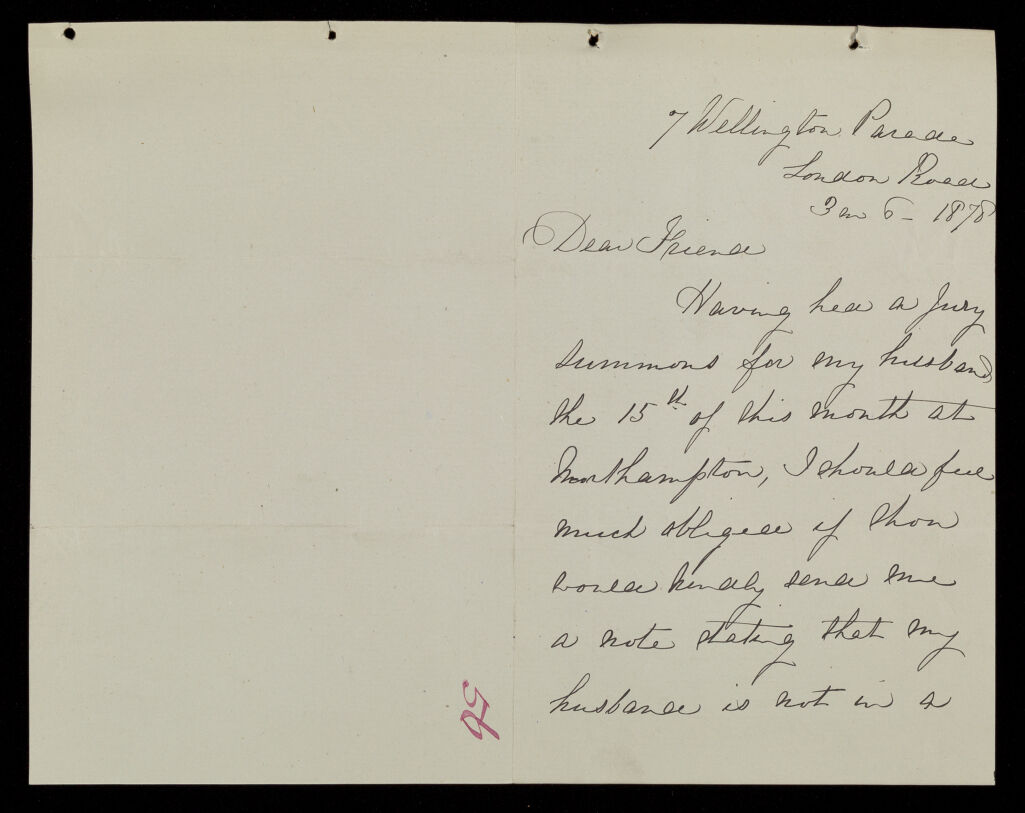 7 Wellington Parade
London Road
3m 6 - 1878
Dear Friend
Having had a Jury
summons for my husband
the 15th of this month at
Northampton, I should feel
much obliged if thou
would kindly send me
a note stating that my
husband is not in a